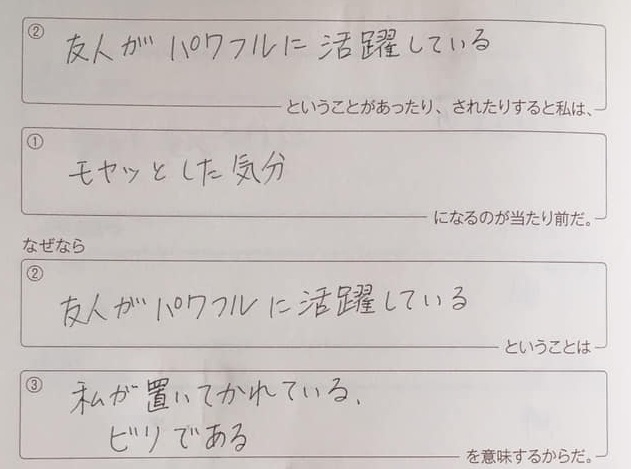 ②
友人が パワフルに 活躍している
ということがあったり、されたりすると私は、
①
モヤッと した 気分
になるのが当たり前だ。
なぜなら
②
友人が パワフルに活躍している
ということは
③
私が 置いてかれている、
ビリである
を意味するからだ。